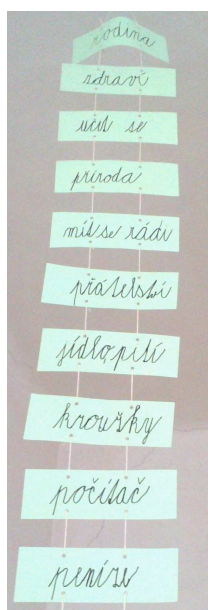 rodina
zdraví
učit se
příroda
mít se rádi
přátelství
jídlo, pití
kroužky
počítač
peníze